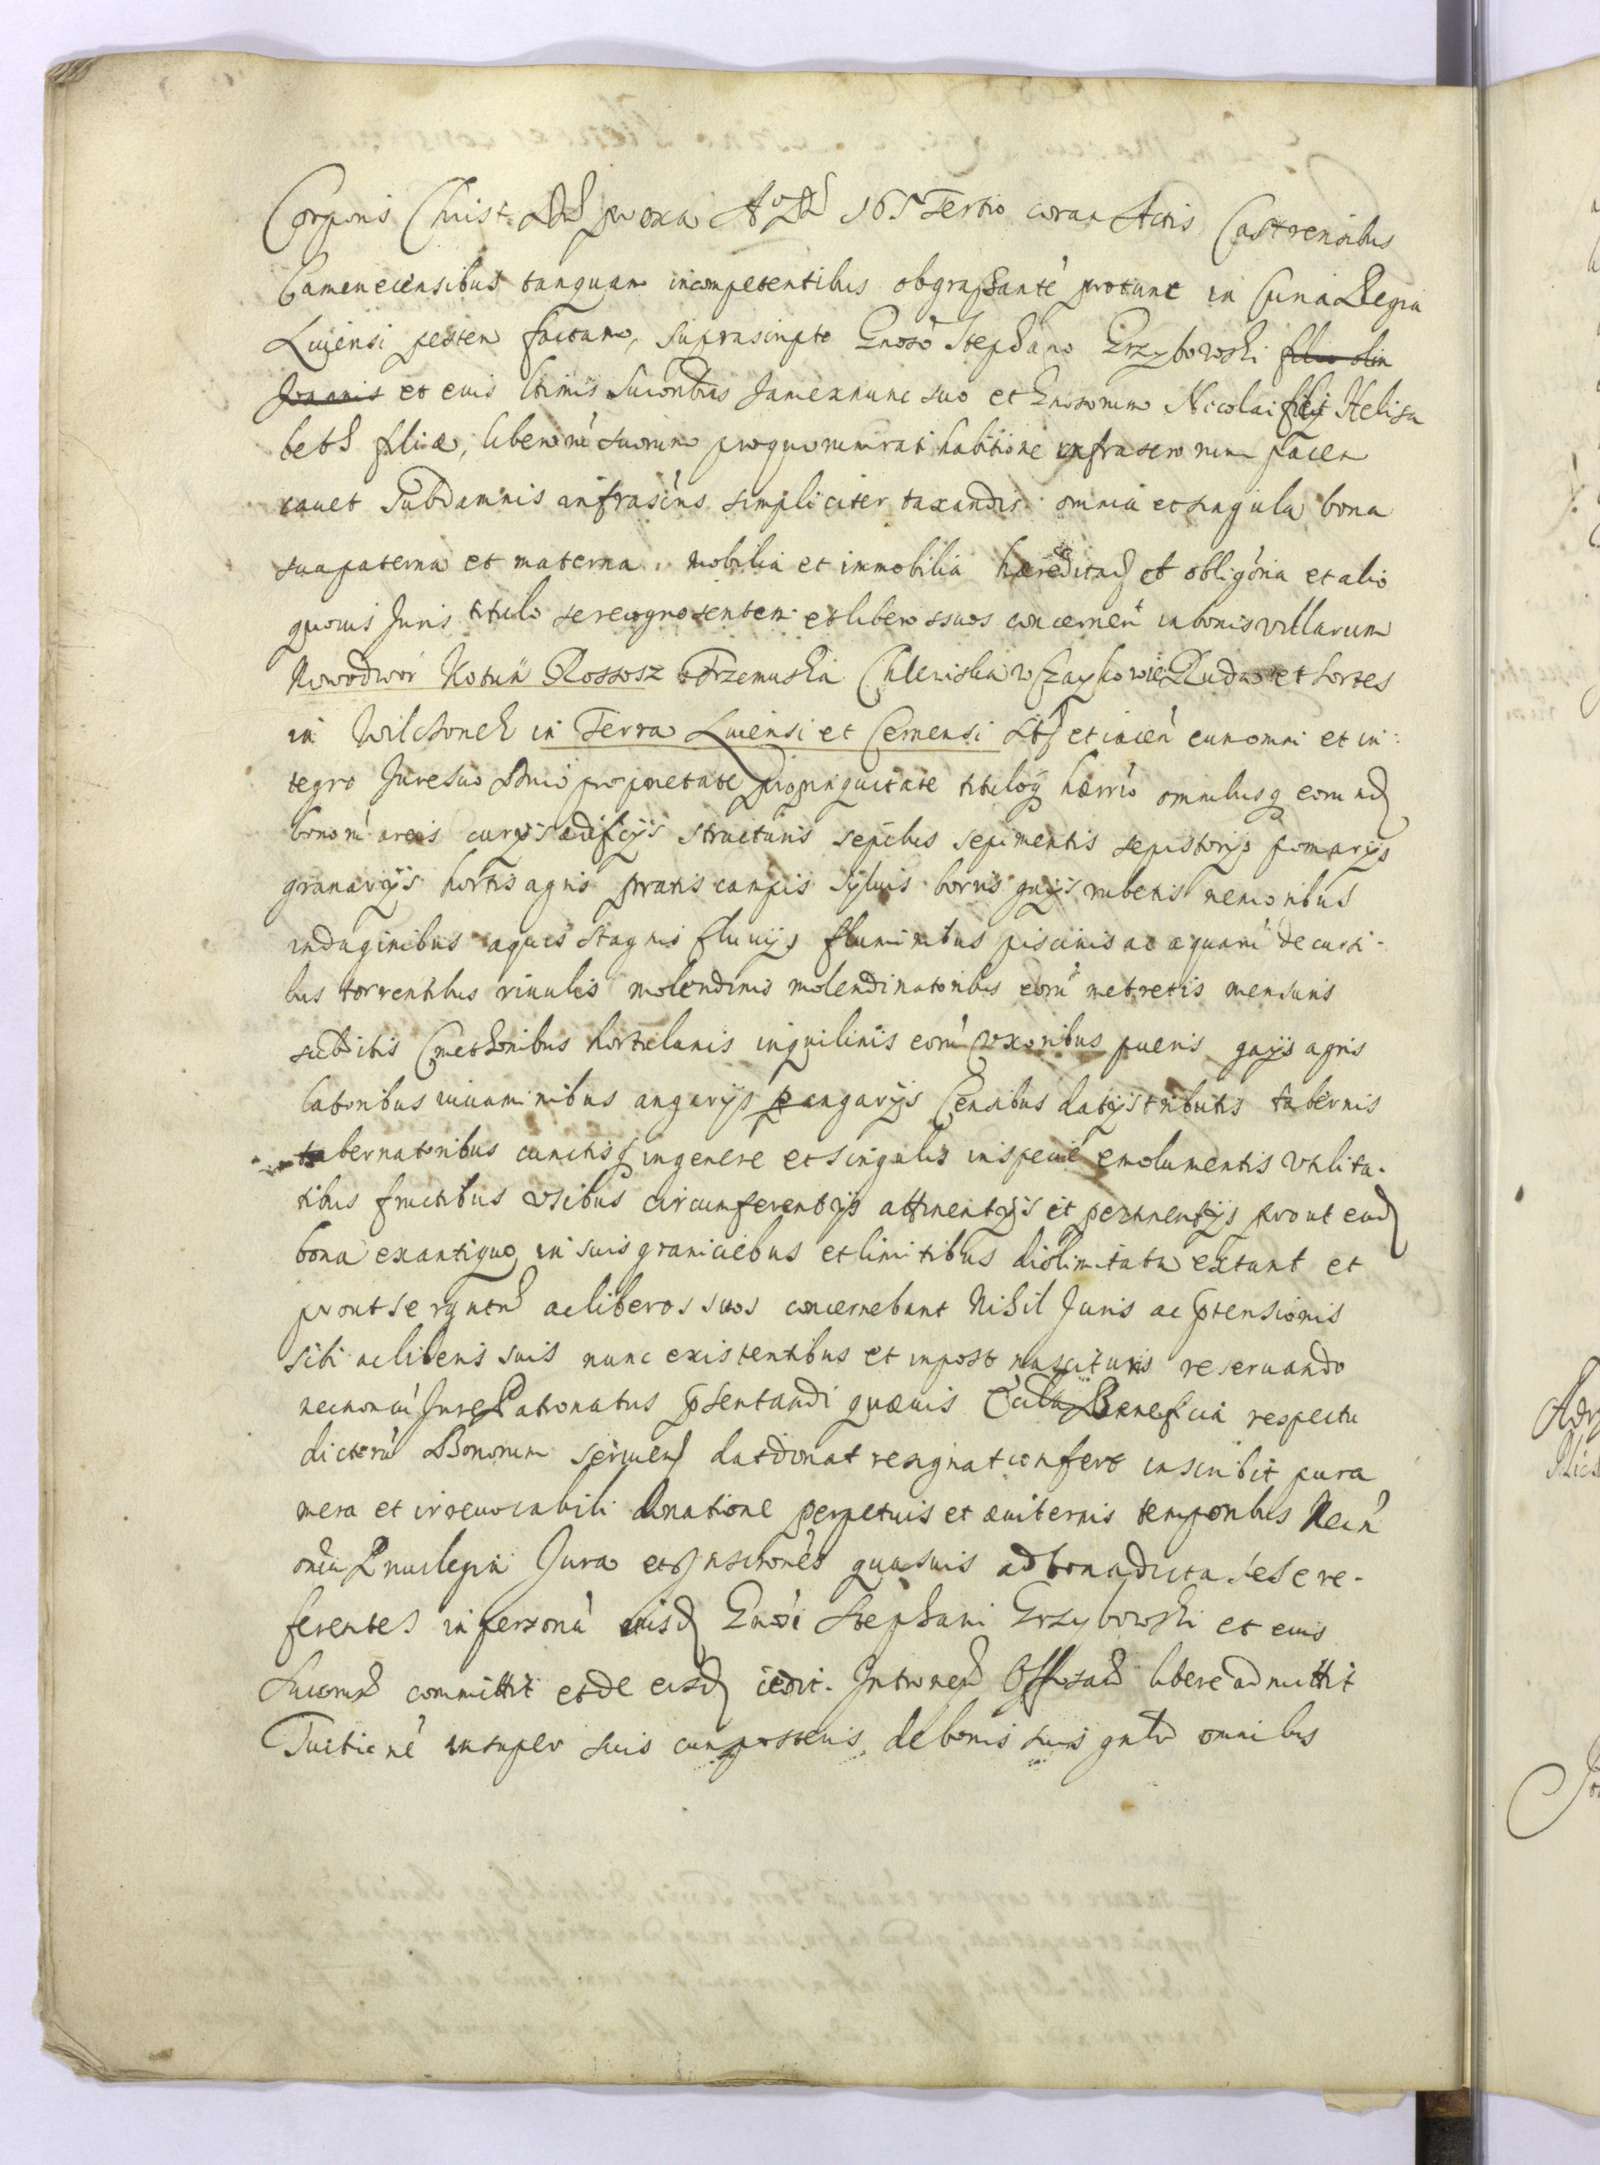 Corporis Christi proxa 165 Tertio coram Actis Castrensibus
Camenecensibus tanquam incompetentibus obgrassante protunc in Curia Regia
Luiensi pestem factam, suprascripto Gnoso Stephano Grzybowski filio olim
Joannis et eius ltimis Successoribus Jamexnunc suo et Gnosorum Nicolai filii Helisa
beth filiæ, liberorum suorum proquorum rati habitione infrascronum facen
cauet Subdamnis infrascriis simpliciter taxandis omnia et singula bona
sua paterna et materna, mobilia et immobilia hæreditaria et obligoria et alio
quouis Juris titulo se recognoscentem et liberos suos concernen in bonis villarum
Nowodwor Kotuń Rossosz Trzemuska Chlewiska w Czaykowie Ruda et Sortes
in Wilchonek in Terra Luiensi et Cernensi et incen cum omni et in
tegro Jure suo Dnio proprietate propinquitate tituloq hærrio omnibusq eorund
bonorum areis curys ædificys structuris sepibus sepimentis sepistorys pomarys
granarys hortis agris pratis campis syluis borris gays rubetis nemoribus
indaginibus aquis stagnis fluuys fluminibus piscinis ac aquarum decursi-
bus torrentibus riuulis molendinis molendinatoribus eoru metretis mensuris
subditis Cmethonibus hortulanis inquilinis eoru uxoribus pueris gays agris
laboribus angarys perangarys Censibus datys tributis tabernis
tabernatoribus cunctisq ingenere et singulis inspecie emolumentis vtilita-
tibus fructibus vsibus circumferentys attinentys et pertinentys prout ead
bona exantiquo in suis graniciebus et limitibus dislimitata extant et
prout se ac liberos suos concernebant Nihil Juris ac ptensionis
sibi ac liberis suis nunc existentibus et inpost nascituris reseruando
necnon cu Jure Patronatus psentandi quæuis Beneficia respectu
dictoru Bonorum seruien dat donat resignat confert inscribit pura
mera et irreuocabili donatione perpetuis et æuiternis temporibus Necn
omia Priuilegia Jura et Inscriones quasuis ad bona dicta sese re-
ferentes in personā eiusd Gnosi Stephani Grzybowski et eius
Succorum committit et de eisd cedit. Intromen Offosam libere admittit
Tuitione insuper suis cum posteris de bonis suis gnlr omnibus